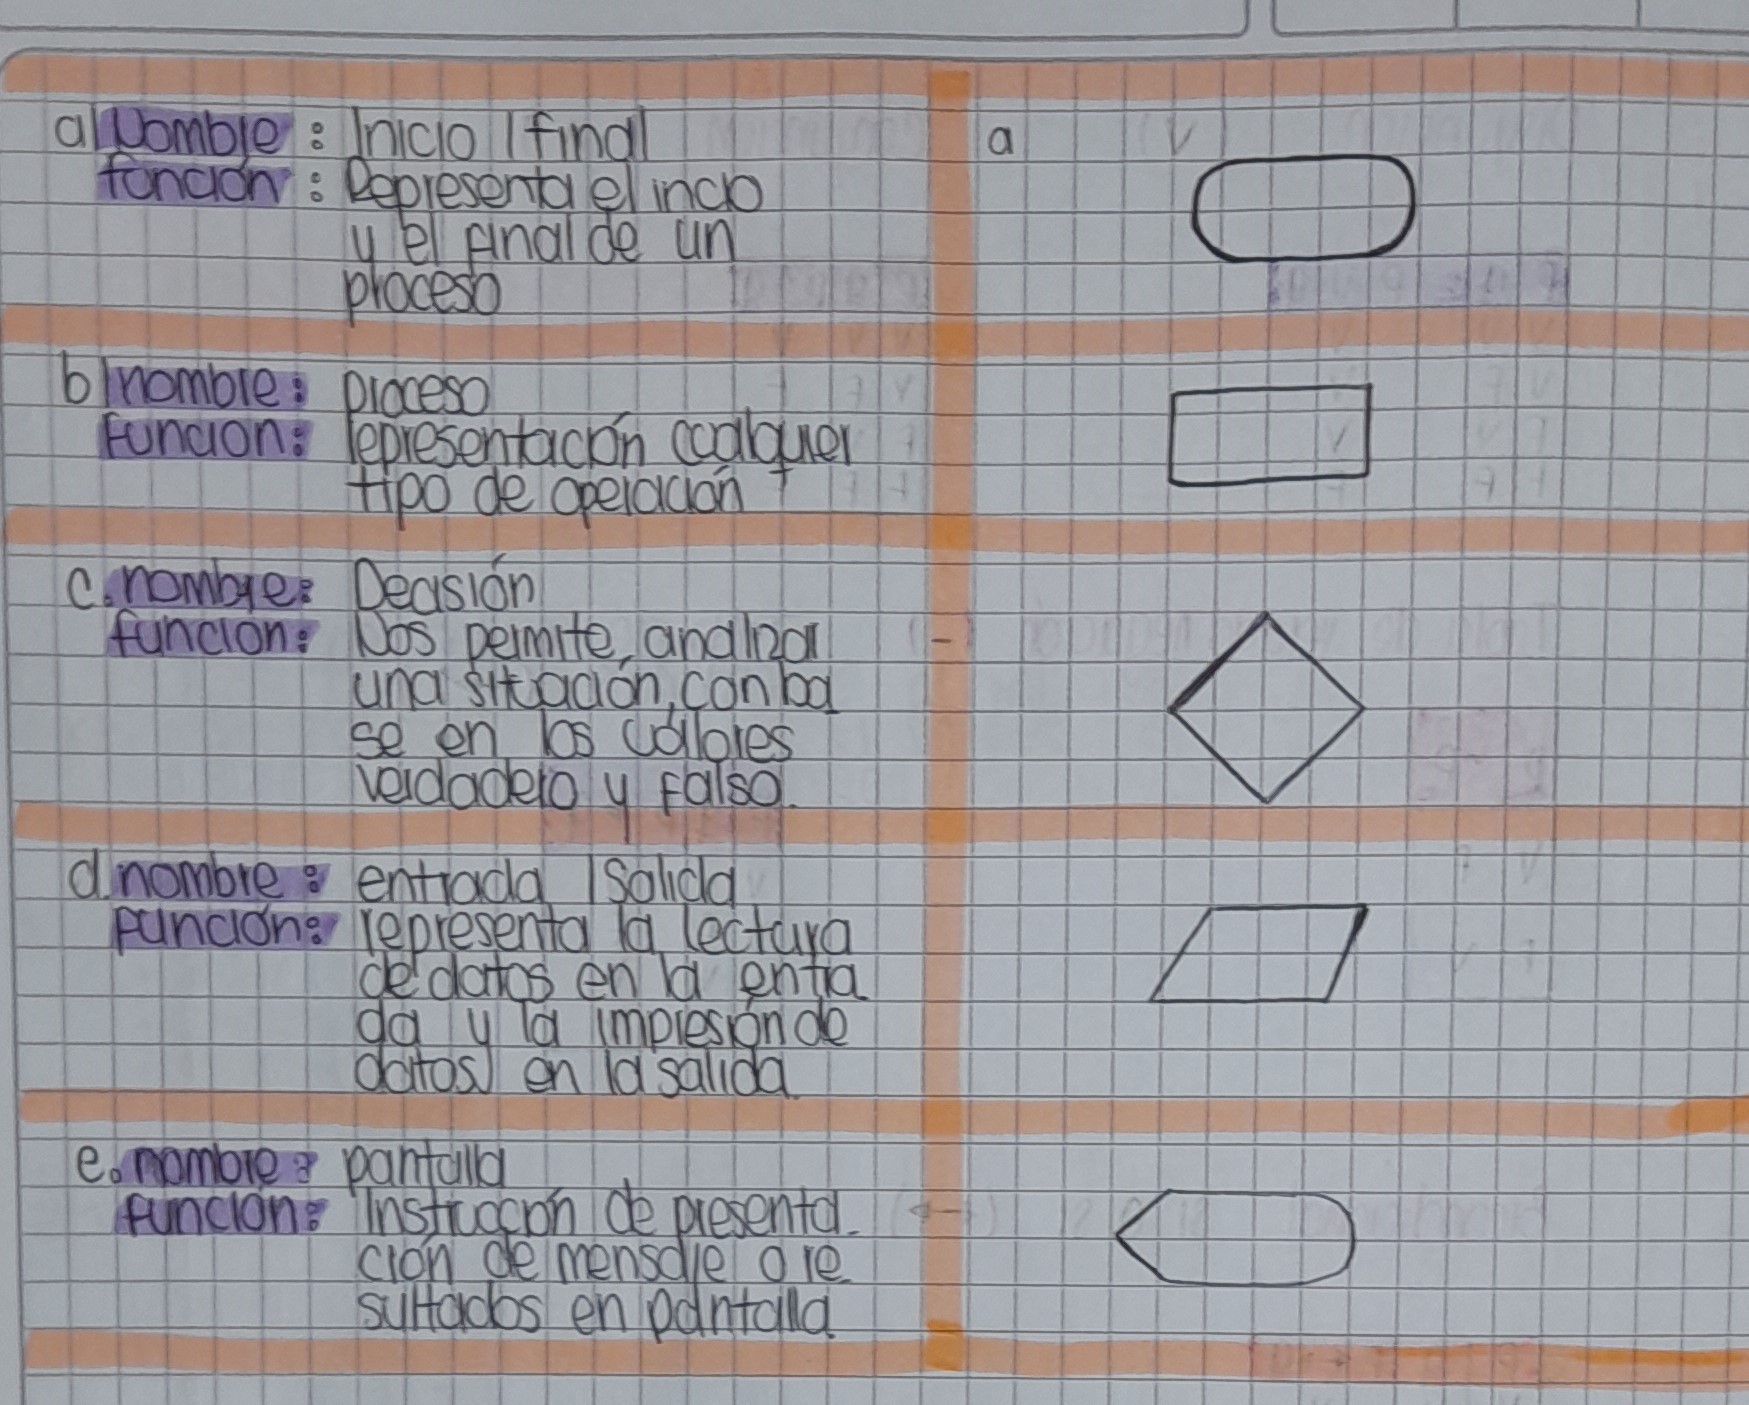 a| Nombre : Inicio / final
función : Representa el incio
y el final de un
proceso
a
b| nombre: proceso
funcion: representación cualquier
tipo de operación
c. nombre: Decisión
funcion: Nos permite, analizar
una situación, con ba
se en los vallores
verdadero y Falso.
d. nombre : entrada / Salida
función: representa la lectura
de datos en la entra
da y la impresión de
datos en la salida
e. nombre: pantalla
función: Instrucción de presenta-
ción de mensaje o re
sultados en pantalla